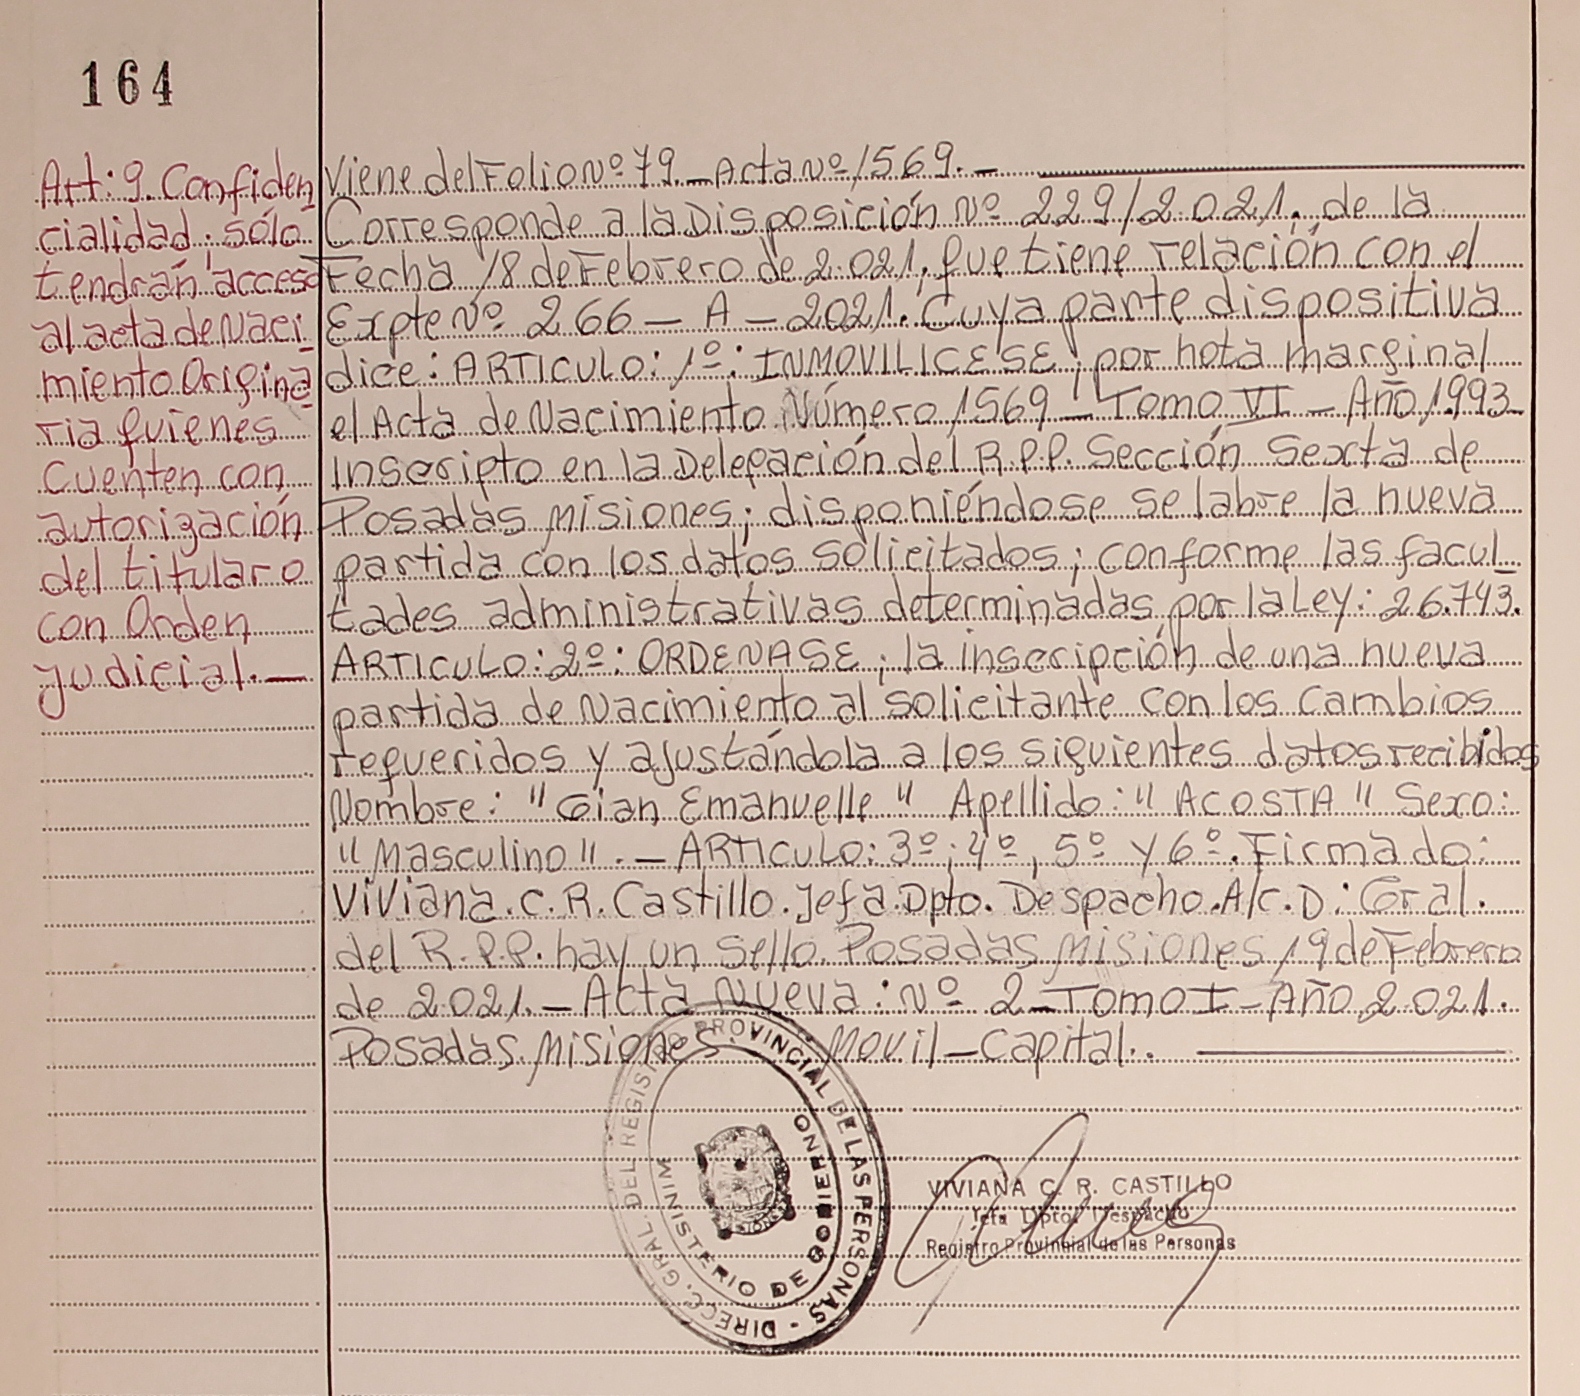 164
Art: 9. Confiden
cialidad; sólo
tendrán acceso
al acta de Naci
miento Origina
ria quienes
Cuenten con
autorización
del titular o
con Orden
judicial.—
Viene del Folio Nº 79.—Acta Nº 1569.—
Corresponde a la Disposición Nº 229/2.021, de la
Fecha 18 de Febrero de 2.021, que tiene relación con el
Expte Nº 266 — A — 2021. Cuya parte dispositiva
dice: ARTICULO: 1º: INMOVILICESE; por nota marginal
el Acta de Nacimiento Número 1569 — Tomo VI — Año 1.993
Inscripto en la Delegación del R.P.P. Sección Sexta de
Posadas Misiones; disponiéndose se labre la nueva
partida con los datos solicitados; conforme las facul
tades administrativas determinadas por la Ley: 26.743.
ARTICULO: 2º: ORDENASE; la inscripción de una nueva
partida de Nacimiento al solicitante con los cambios
requeridos y ajustándola a los siguientes datos recibidos
Nombre: "Gian Emanuelle" Apellido: "ACOSTA" Sexo:
"Masculino".— ARTICULO: 3º; 4º, 5º y 6º. Firmado:
Viviana.C.R.Castillo.Jefa.Dpto. Despacho.A/C.D: Gral.
del R.P.P. hay un sello. Posadas Misiones, 19 de Febrero
de 2.021.—Acta Nueva: Nº 2—Tomo I—Año 2.021.
Posadas. Misiones. Movil—Capital.
DIRECC. GRAL. DEL REGISTRO PROVINCIAL DE LAS PERSONAS -
MINISTERIO DE GOBIERNO
VIVIANA C. R. CASTILLO
Jefa Dpto. Despacho
Registro Provincial de las Personas